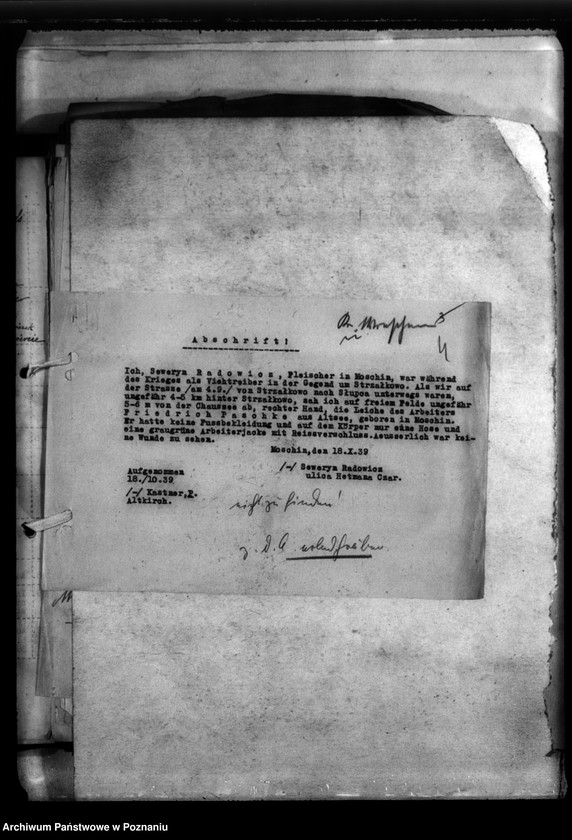 Abschrift!
Ich, Seweryn Radowicz, Fleischer in Moschin, war während
des Krieges als Viehtreiber in der Gegend um Strzałkowo. Als wir auf
der Strasse /am 4.9./ von Strzałkowo nach Słupca unterwegs waren,
ungefähr 4-5 km hinter Strzałkowo, sah ich auf freiem Felde ungefähr
5-6 m von der Chaussee ab, rechter Hand, die Leiche des Arbeiters
Friedrich Paschke aus Altsee, geboren in Moschin.
Er hatte keine Fussbekleidung und auf dem Körper nur eine Hose und
eine graugrüne Arbeiterjacke mit Reissverschluss. Aeusserlich war kei-
ne Wunde zu sehen.
Moschin, den 18.X.39
/-/ Seweryn Radowicz
ulica Hetmana Czar.
Aufgenommen
18./10.39
/-/ Kastner, P.
Altkirch.
nicht zu finden!
z. d. A.
Archiwum Państwowe w Poznaniu